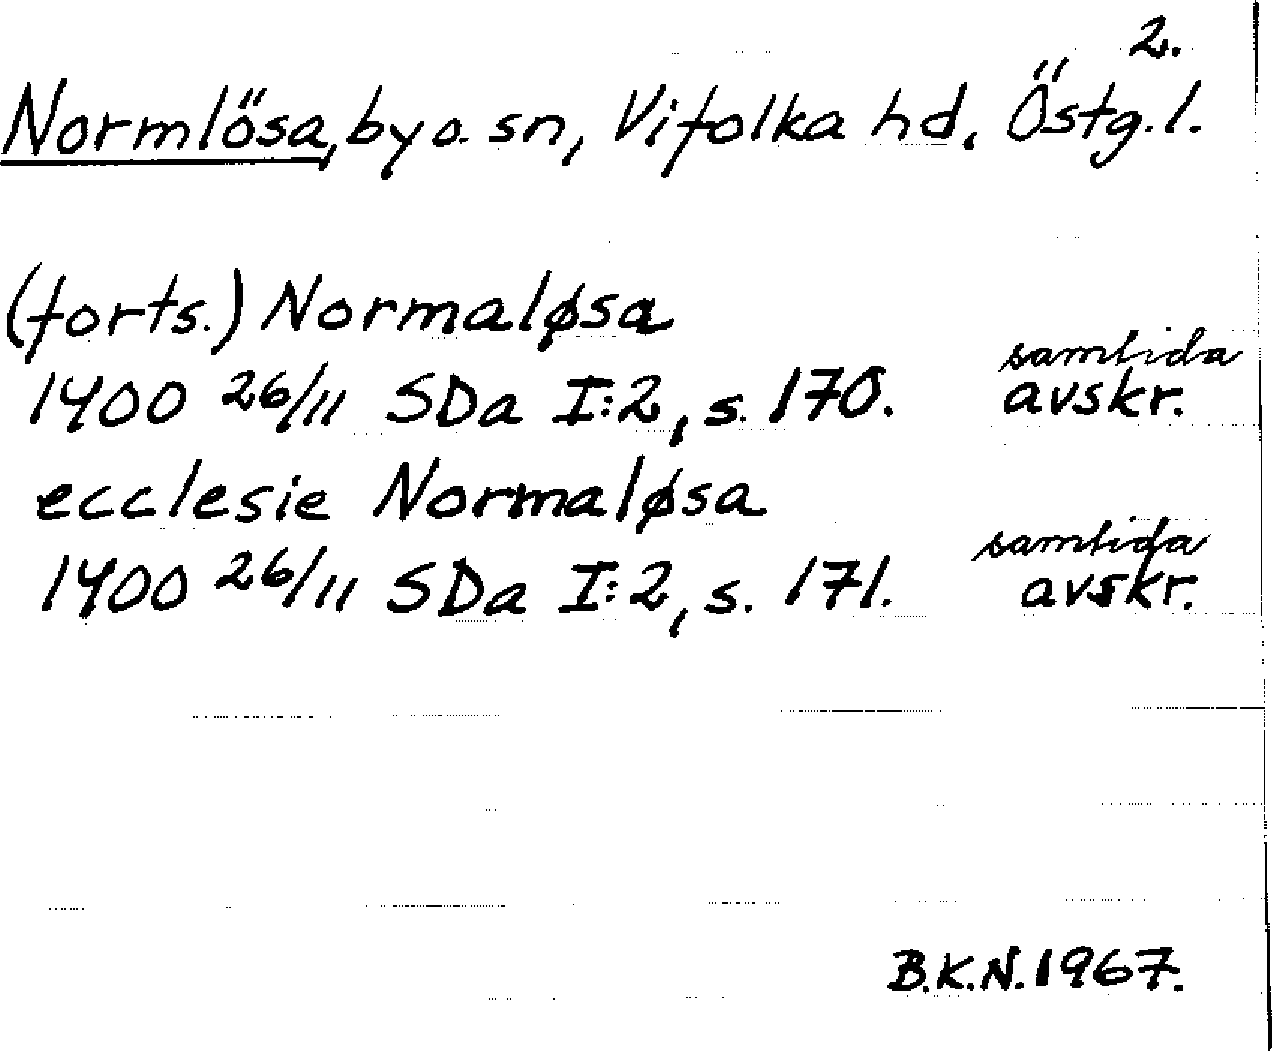 2.
Normlösa, by o. sn, Vifolka hd, Östg.l.
(forts.) Normaløsa
1400 26/11 SDa I:2, s. 170. samtida avskr.
ecclesie Normaløsa
1400 26/11 SDa I:2, s. 171. samtida avskr.
B.K.N. 1967.